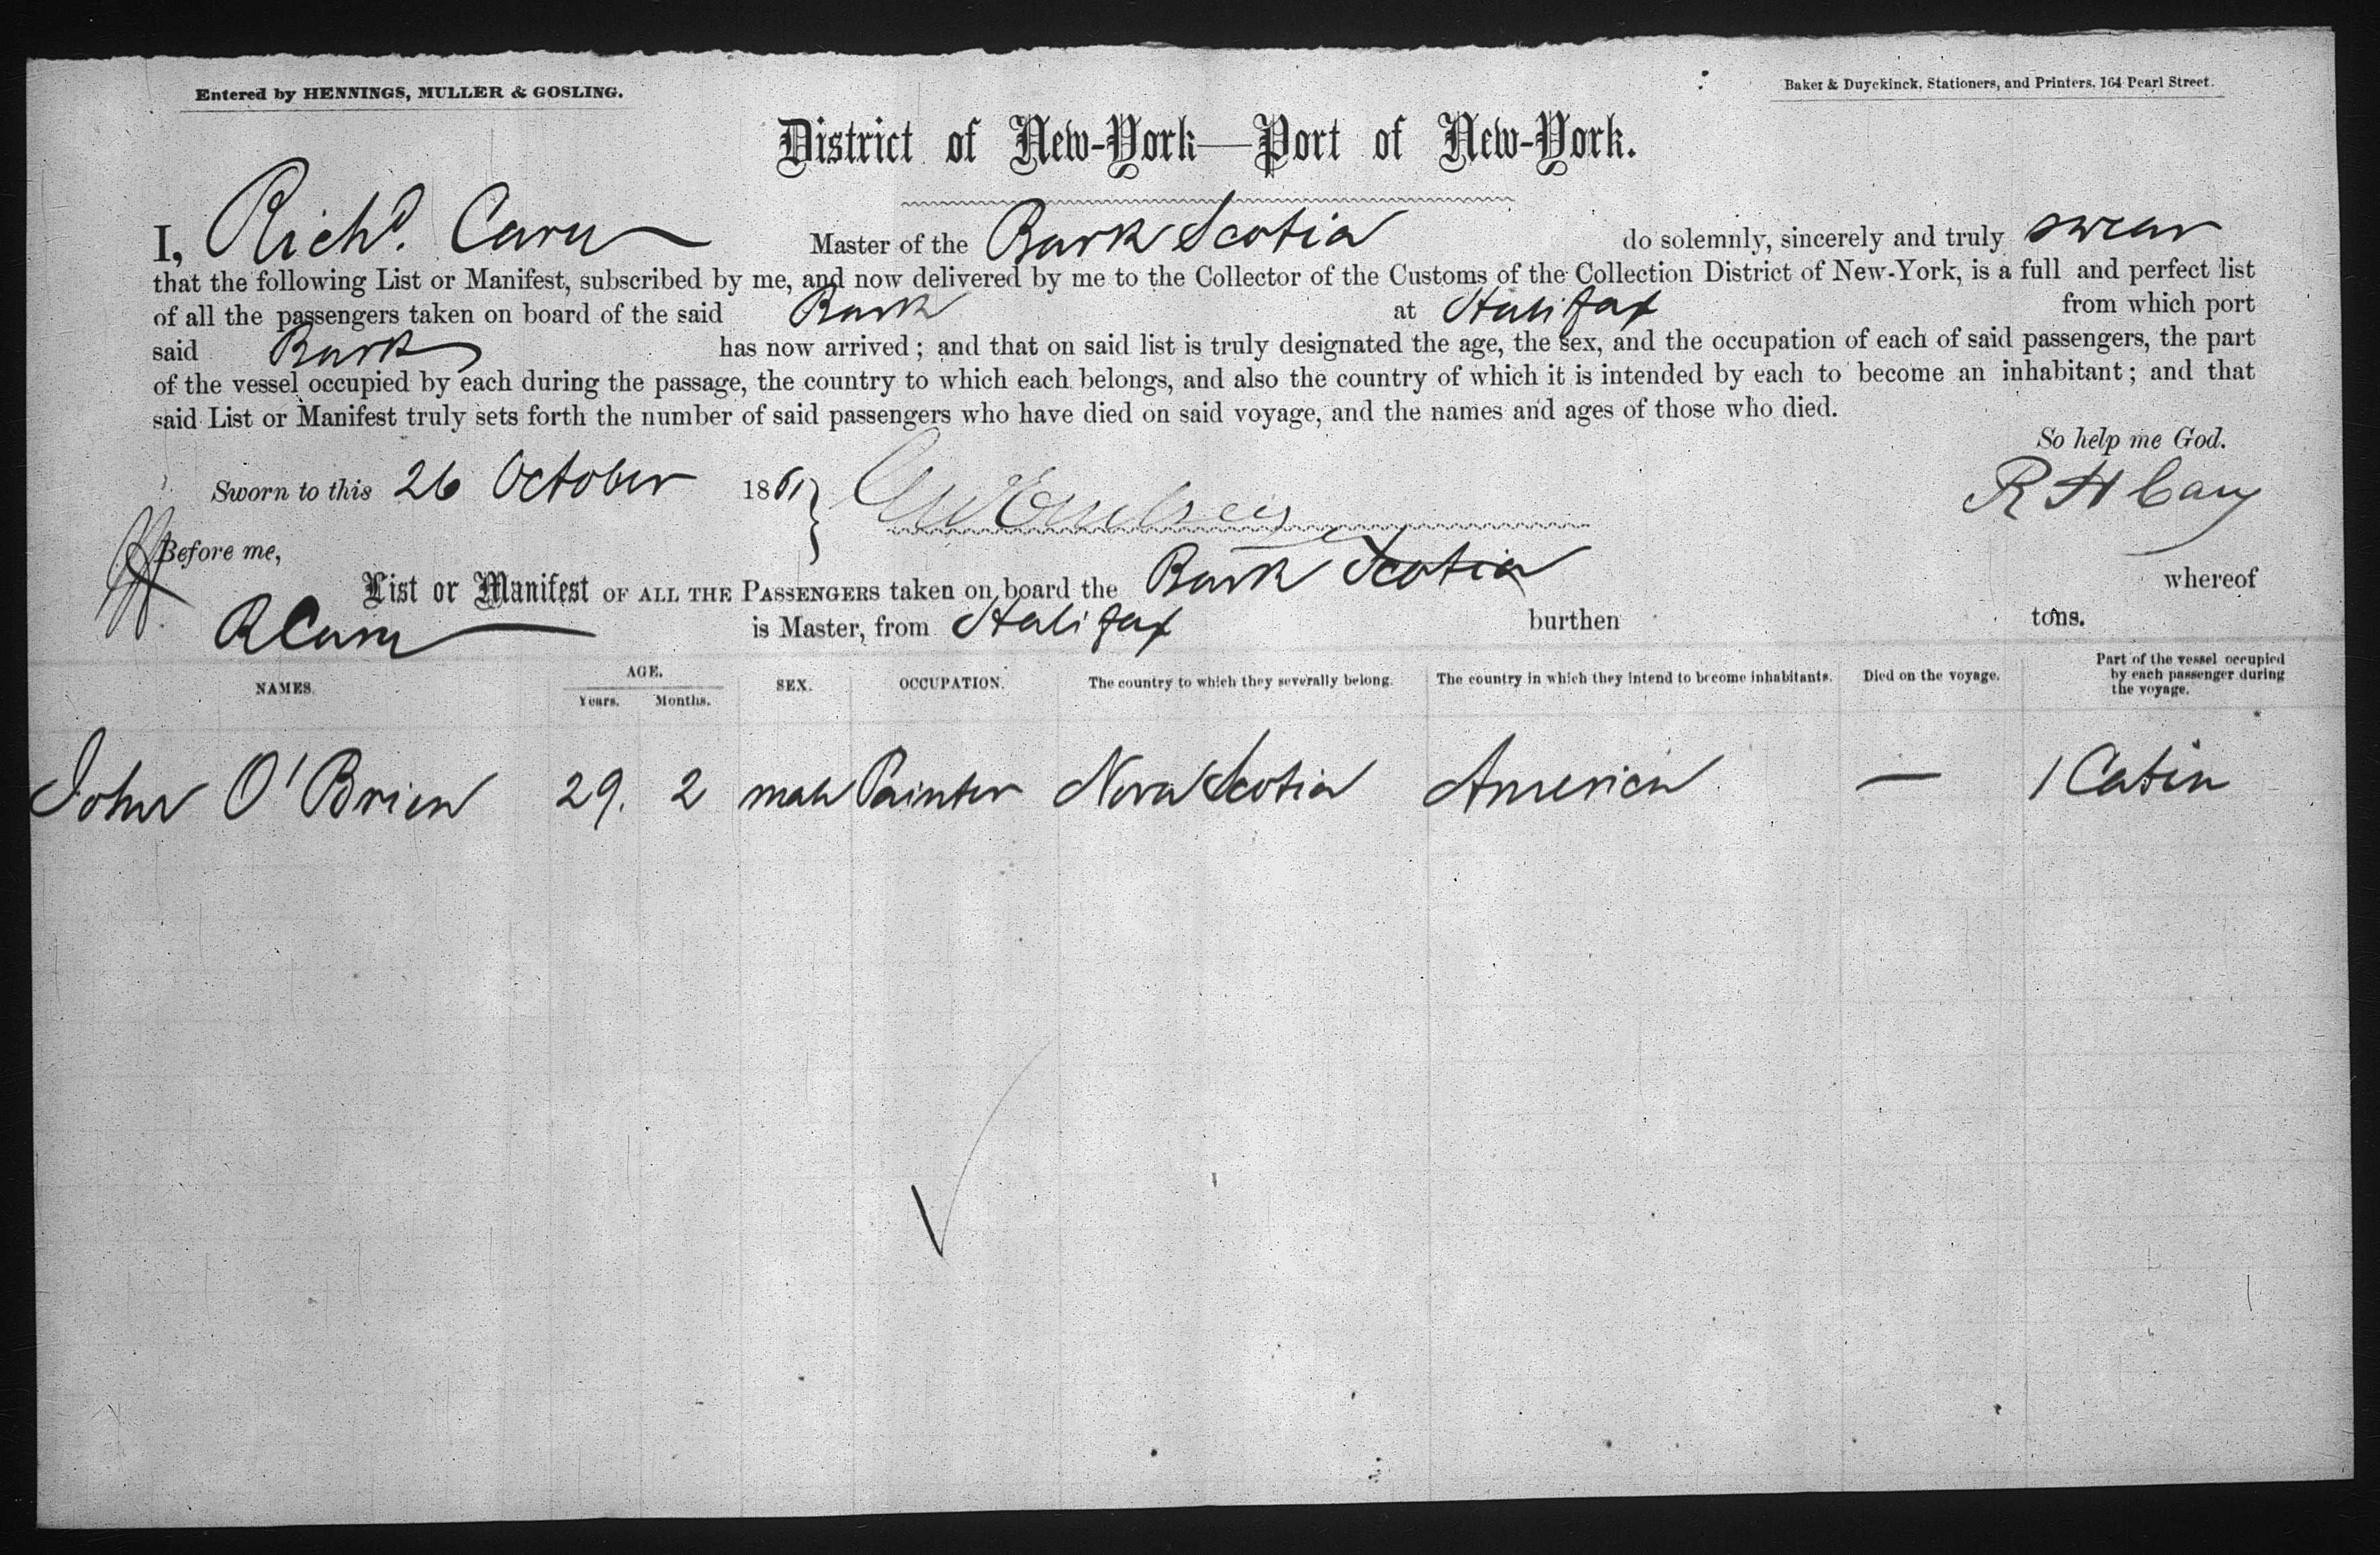 Entered by HENNINGS, MULLER & GOSLING.
Baker & Duyckinck, Stationers, and Printers, 164 Pearl Street.
District of New-York—Port of New-York.
I, Richd. Cary Master of the Bark Scotia do solemnly, sincerely and truly swear
that the following List or Manifest, subscribed by me, and now delivered by me to the Collector of the Customs of the Collection District of New-York, is a full and perfect list
of all the passengers taken on board of the said Bark at Halifax from which port
said Bark has now arrived; and that on said list is truly designated the age, the sex, and the occupation of each of said passengers, the part
of the vessel occupied by each during the passage, the country to which each belongs, and also the country of which it is intended by each to become an inhabitant; and that
said List or Manifest truly sets forth the number of said passengers who have died on said voyage, and the names and ages of those who died.
So help me God.
Sworn to this 26 October 1861
R H Cary
Before me,
List or Manifest OF ALL THE PASSENGERS taken on board the Bark Scotia whereof
R Cary is Master, from Halifax burthen tons.
NAMES. AGE. Years. Months. SEX. OCCUPATION. The country to which they severally belong. The country in which they intend to become inhabitants. Died on the voyage. Part of the vessel occupied by each passenger during the voyage.
John O'Brien 29. 2 male Painter Nova Scotia America — 1 Cabin